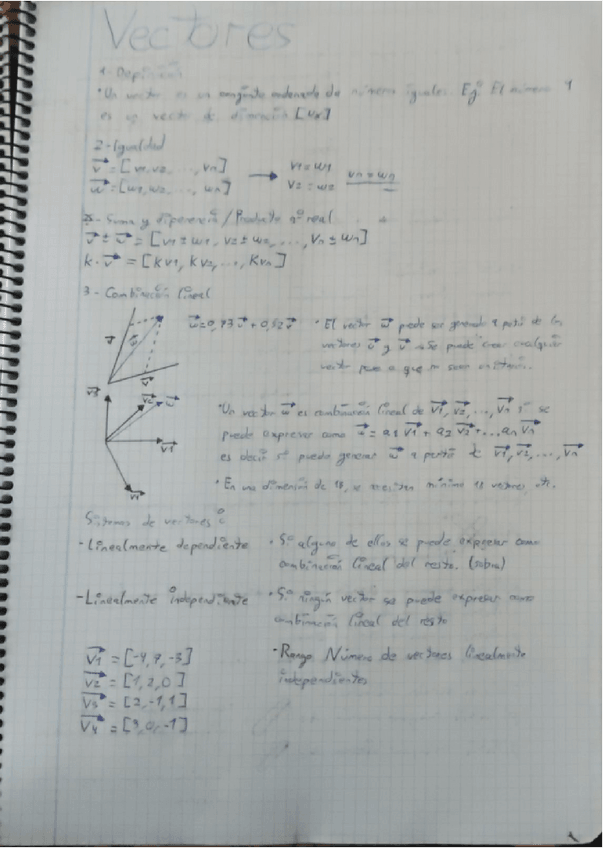 Vectores
1- Definición
• Un vector es un conjunto ordenado de números iguales. Eg: El número 1
es un vector de dimensión
2- Igualdad
v = [v1, v2, ..., vn]
w = [w1, w2, ..., wn]
v1 = w1
v2 = w2
vn = wn
- Suma y diferencia / Producto nº real
v ± w = [v1 ± w1, v2 ± w2, ..., vn ± wn]
k · v = [kv1, kv2, ..., kvn]
3- Combinación lineal
• El vector w puede ser generado a partir de los
vectores u y v → Se puede crear cualquier
vector
v3
v2
w
v1
• Un vector w es combinación lineal de v1, v2, ..., vn si se
puede expresar como = a1 v1 + a2 v2 + ... an vn
es decir si puedo generar w a partir de v1, v2, ..., vn
• En una dimensión de 18, se necesitan mínimo 18 vectores
Sistemas de vectores:
- Linealmente dependiente
• Si alguno de ellos se puede expresar como
combinación lineal del resto. (sobra)
- Linealmente independiente
• Si ningún vector se puede expresar como
combinación lineal del resto
• Rango Número de vectores linealmente
independientes
v1 = [-4, 7, -3]
v2 = [1, 2, 0]
v3 = [2, -1, 1]
v4 = [3, 0, -1]